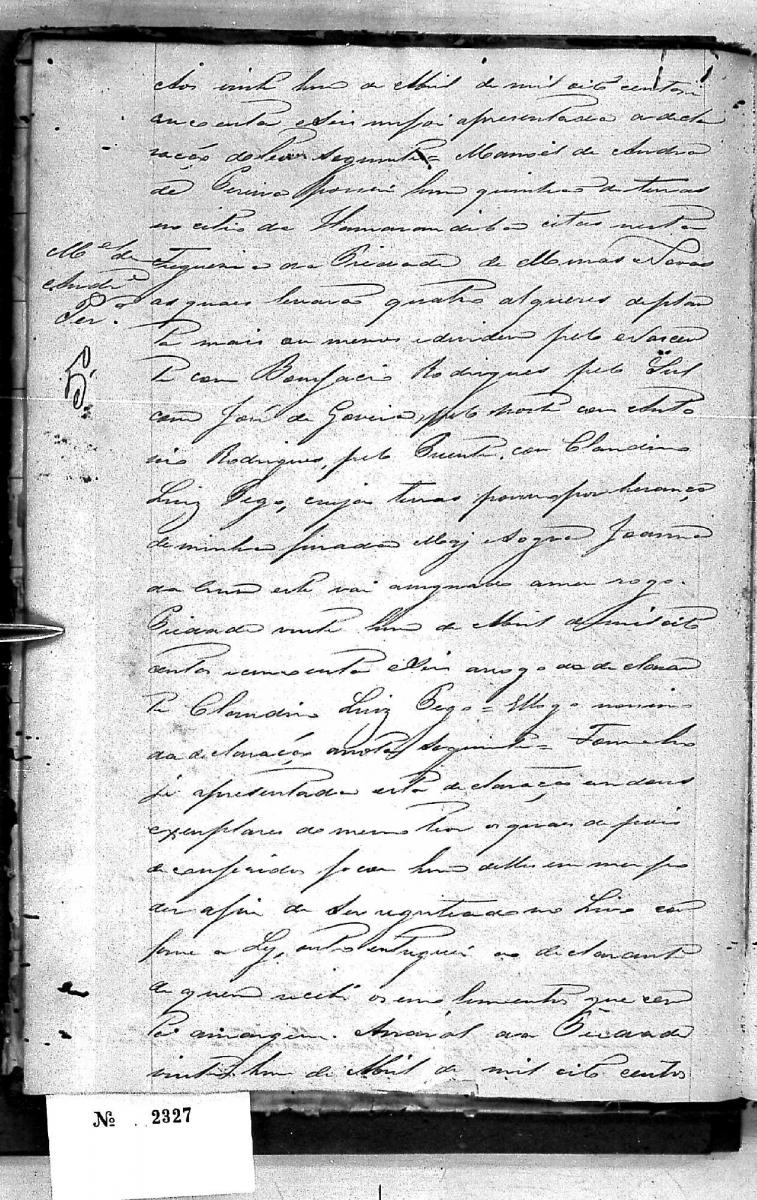 Aos vinte hum de Abril de mil oito centos e
cincoenta e seis me foi apresentada a decla
ração do theor seguinte = Manoel de Andra
de Pereira possue hum quinhão de terras
no citio da Itamarandiba citas nesta
Freguezia da Piedade de Minas Novas
M.el de
Andr.e
Per.a
as quais levará quatro alqueres de plan
ta mais ou menos e dividem pelo Nascen
te com Bonifacio Rodrigues pelo Sul
5
com José de Goveia, pelo Norte com Anto
nio Rodrigues, pelo Puente, com Claudino
Luiz Pego, cujas terras possuo por herança
de minha finada Maj e Sogra Joanna
da e este vai assignado a meu rogo.
Piedade vinte hum de Abril de mil oito
centos e cincoenta e seis a rogo do declaran
te Claudino Luiz Pego =
da declaração a nota seguinte = Foi me ho
je apresentada esta declaração em dous
exemplares do mesmo theor os quais depois
de conferidos ficou hum delles em meu po
der afim de ser registrado no Livro con
forme a Ley, outro entreguei ao declarante
de quem recebi os emolumentos que cons
ta a margem. Arraial da Piedade
vinte hum de Abril de mil oito centos
Nº 2327